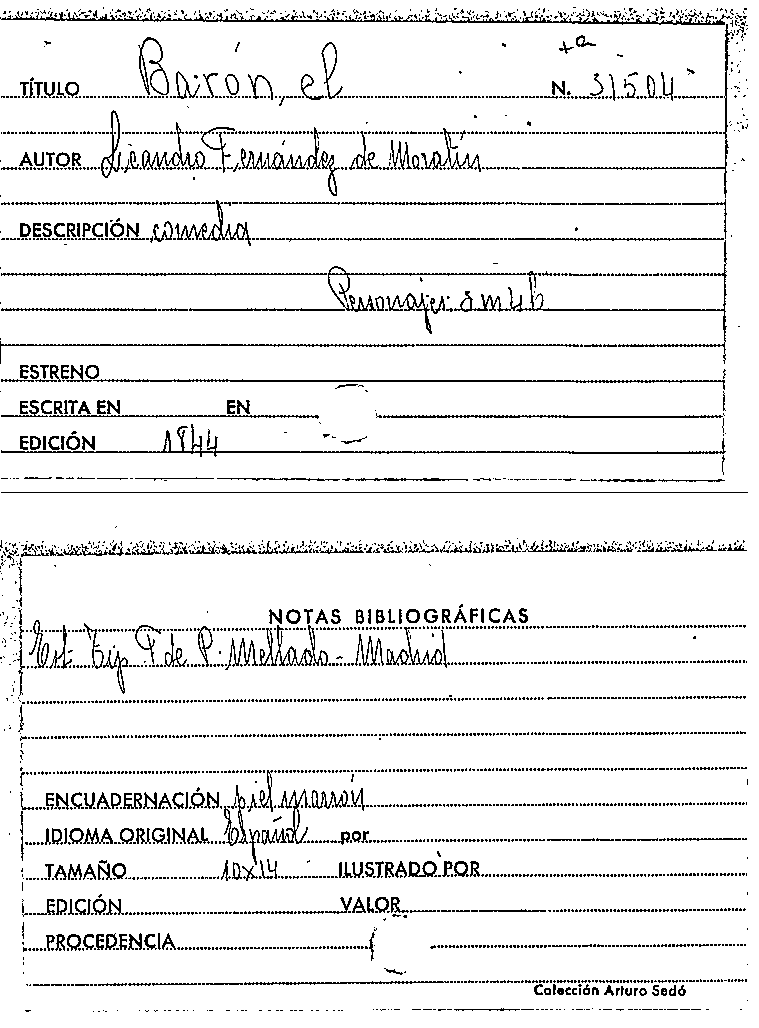 +a
TÍTULO Barón, el N. 31504
AUTOR Leandro Fernández de Moratín
DESCRIPCIÓN comedia
Personajes: 3 m 4 h
ESTRENO
ESCRITA EN EN
EDICIÓN 1844
NOTAS BIBLIOGRÁFICAS
Est. Tip F de P. Mellado - Madrid
ENCUADERNACIÓN piel marrón
IDIOMA ORIGINAL Español por
TAMAÑO 10x14 ILUSTRADO POR
EDICIÓN VALOR
PROCEDENCIA
Colección Arturo Sedó